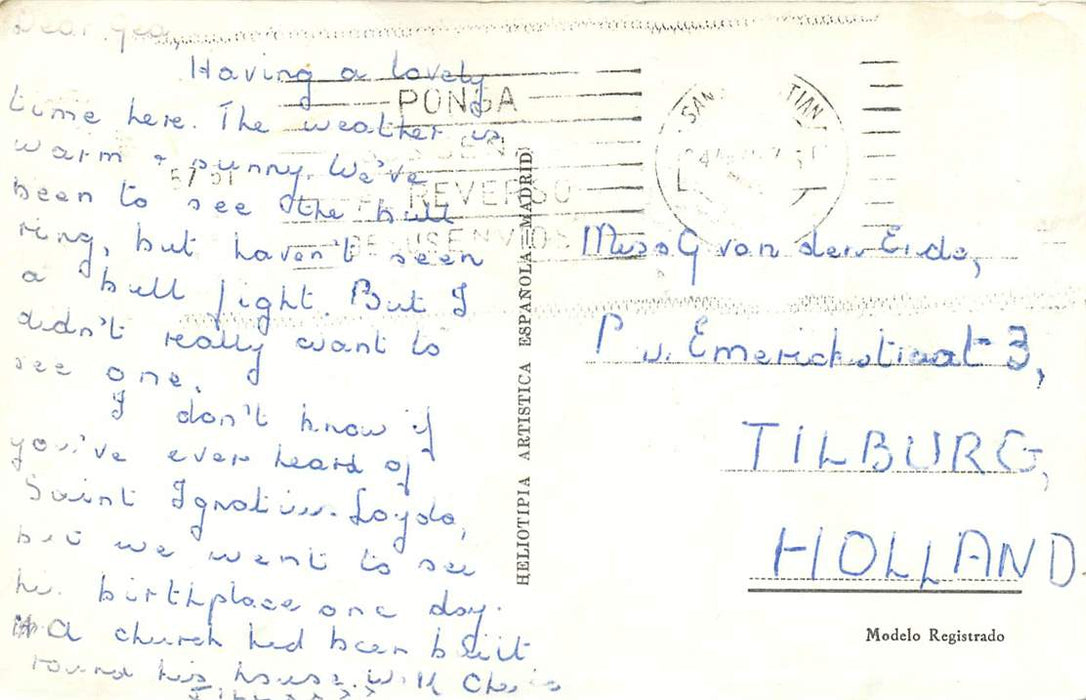 Dear Gea
Having a lovely
time here. The weather is
warm + sunny. We've
been to see the bull
ring, but haven't seen
a bull fight. But I
didn't really want to
see one.
I don't know if
you've ever heard of
Saint Ignatius Loyola,
but we went to see
his birthplace one day.
A church had been built
round his house. Will Chris
HELIOTIPIA ARTISTICA ESPAÑOLA-MADRID
PONGA
EN
REVERSO
DE SUS ENVIOS
SAN TIAN
Miss G van der
P v. Emerickstraat 3,
TILBURG,
HOLLAND.
Modelo Registrado